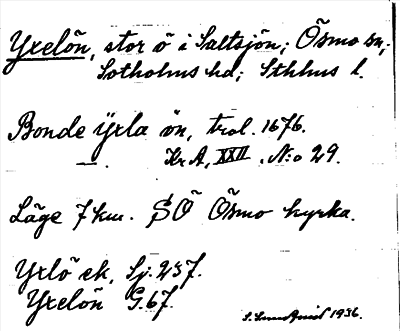 Yxelön, stor ö i Saltsjön; Ösmo sn,
Sotholms hd; Sthlms l.
Bonde Yxla ön, trol. 1676.
— . Kr A, XXII, N:o 29.
Läge 7 km. SÖ Ösmo kyrka.
Yxlö ek, Sj. 237.
Yxelön G. 67.
1936.